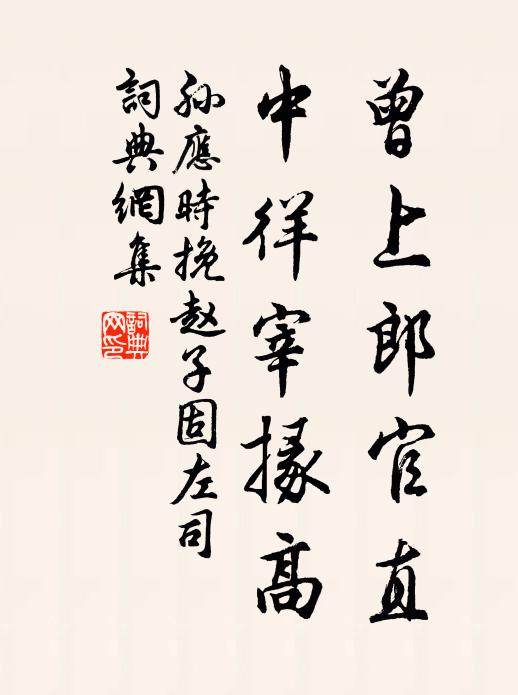 曾上郎官直
中徉宰掾高
孙應時挽赵子固左司
詞典網集
詞典网印